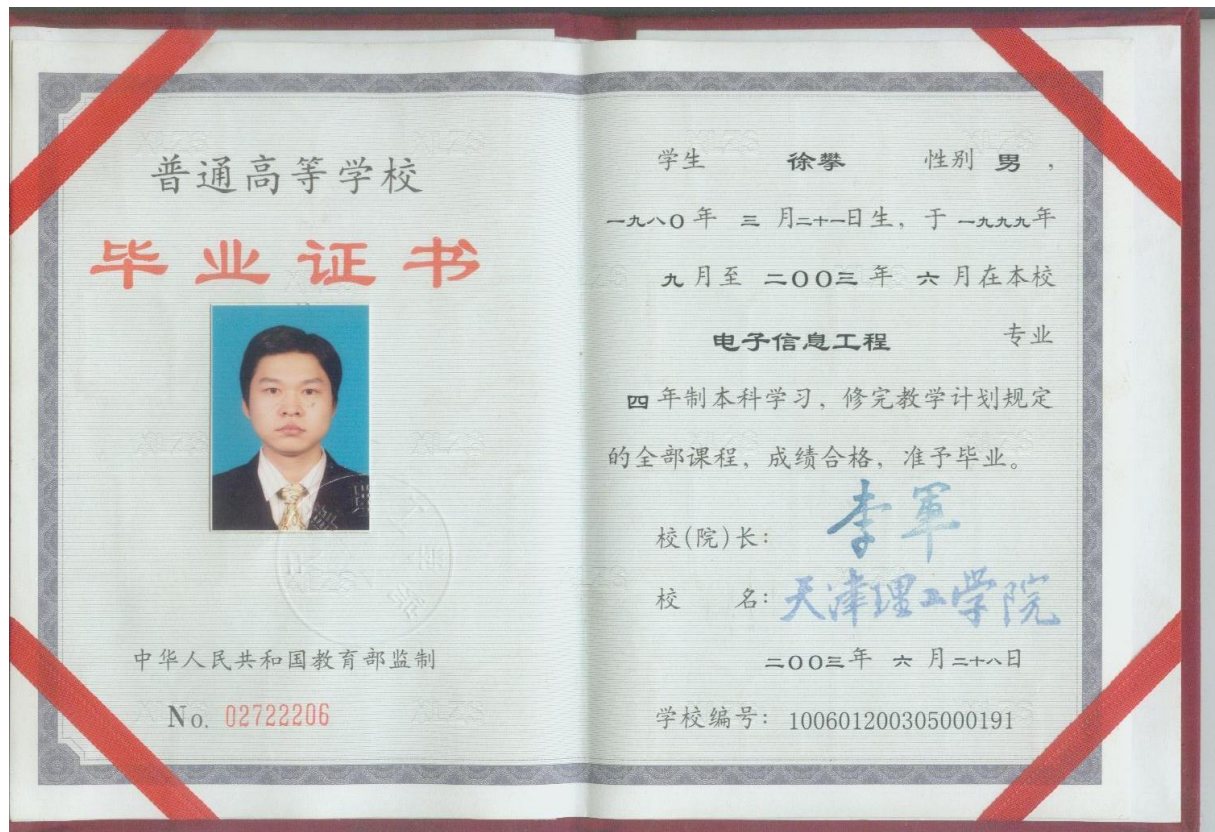 普通高等学校
毕业证书
中华人民共和国教育部监制
No. 02722206
学生 徐攀 性别 男,
一九八〇年 三 月二十一日生, 于 一九九九年
九月至 二〇〇三年 六月在本校
电子信息工程 专业
四年制本科学习, 修完教学计划规定
的全部课程, 成绩合格, 准予毕业。
校(院)长: 李軍
校 名: 天津理工学院
二〇〇三年 六 月二十八日
学校编号: 100601200305000191